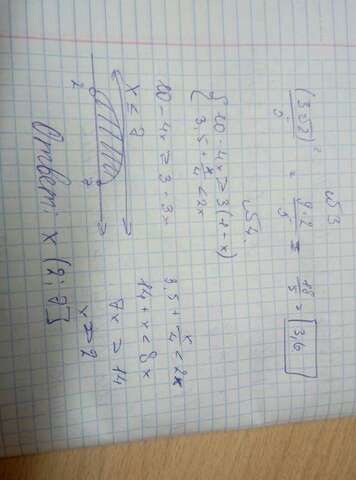 №3
(3√2)² / 5 = 9·2 / 5 = 18/5 = 3,6
№4.
{ 10 - 4x ≥ 3(1 - x)
3,5 + x/4 < 2x
10 - 4x ≥ 3 - 3x
3,5 + x/4 < 2x
14 + x < 8x
7x > 14
x > 2
x ≤ 7
2 7
Ответ: x (2; 7]